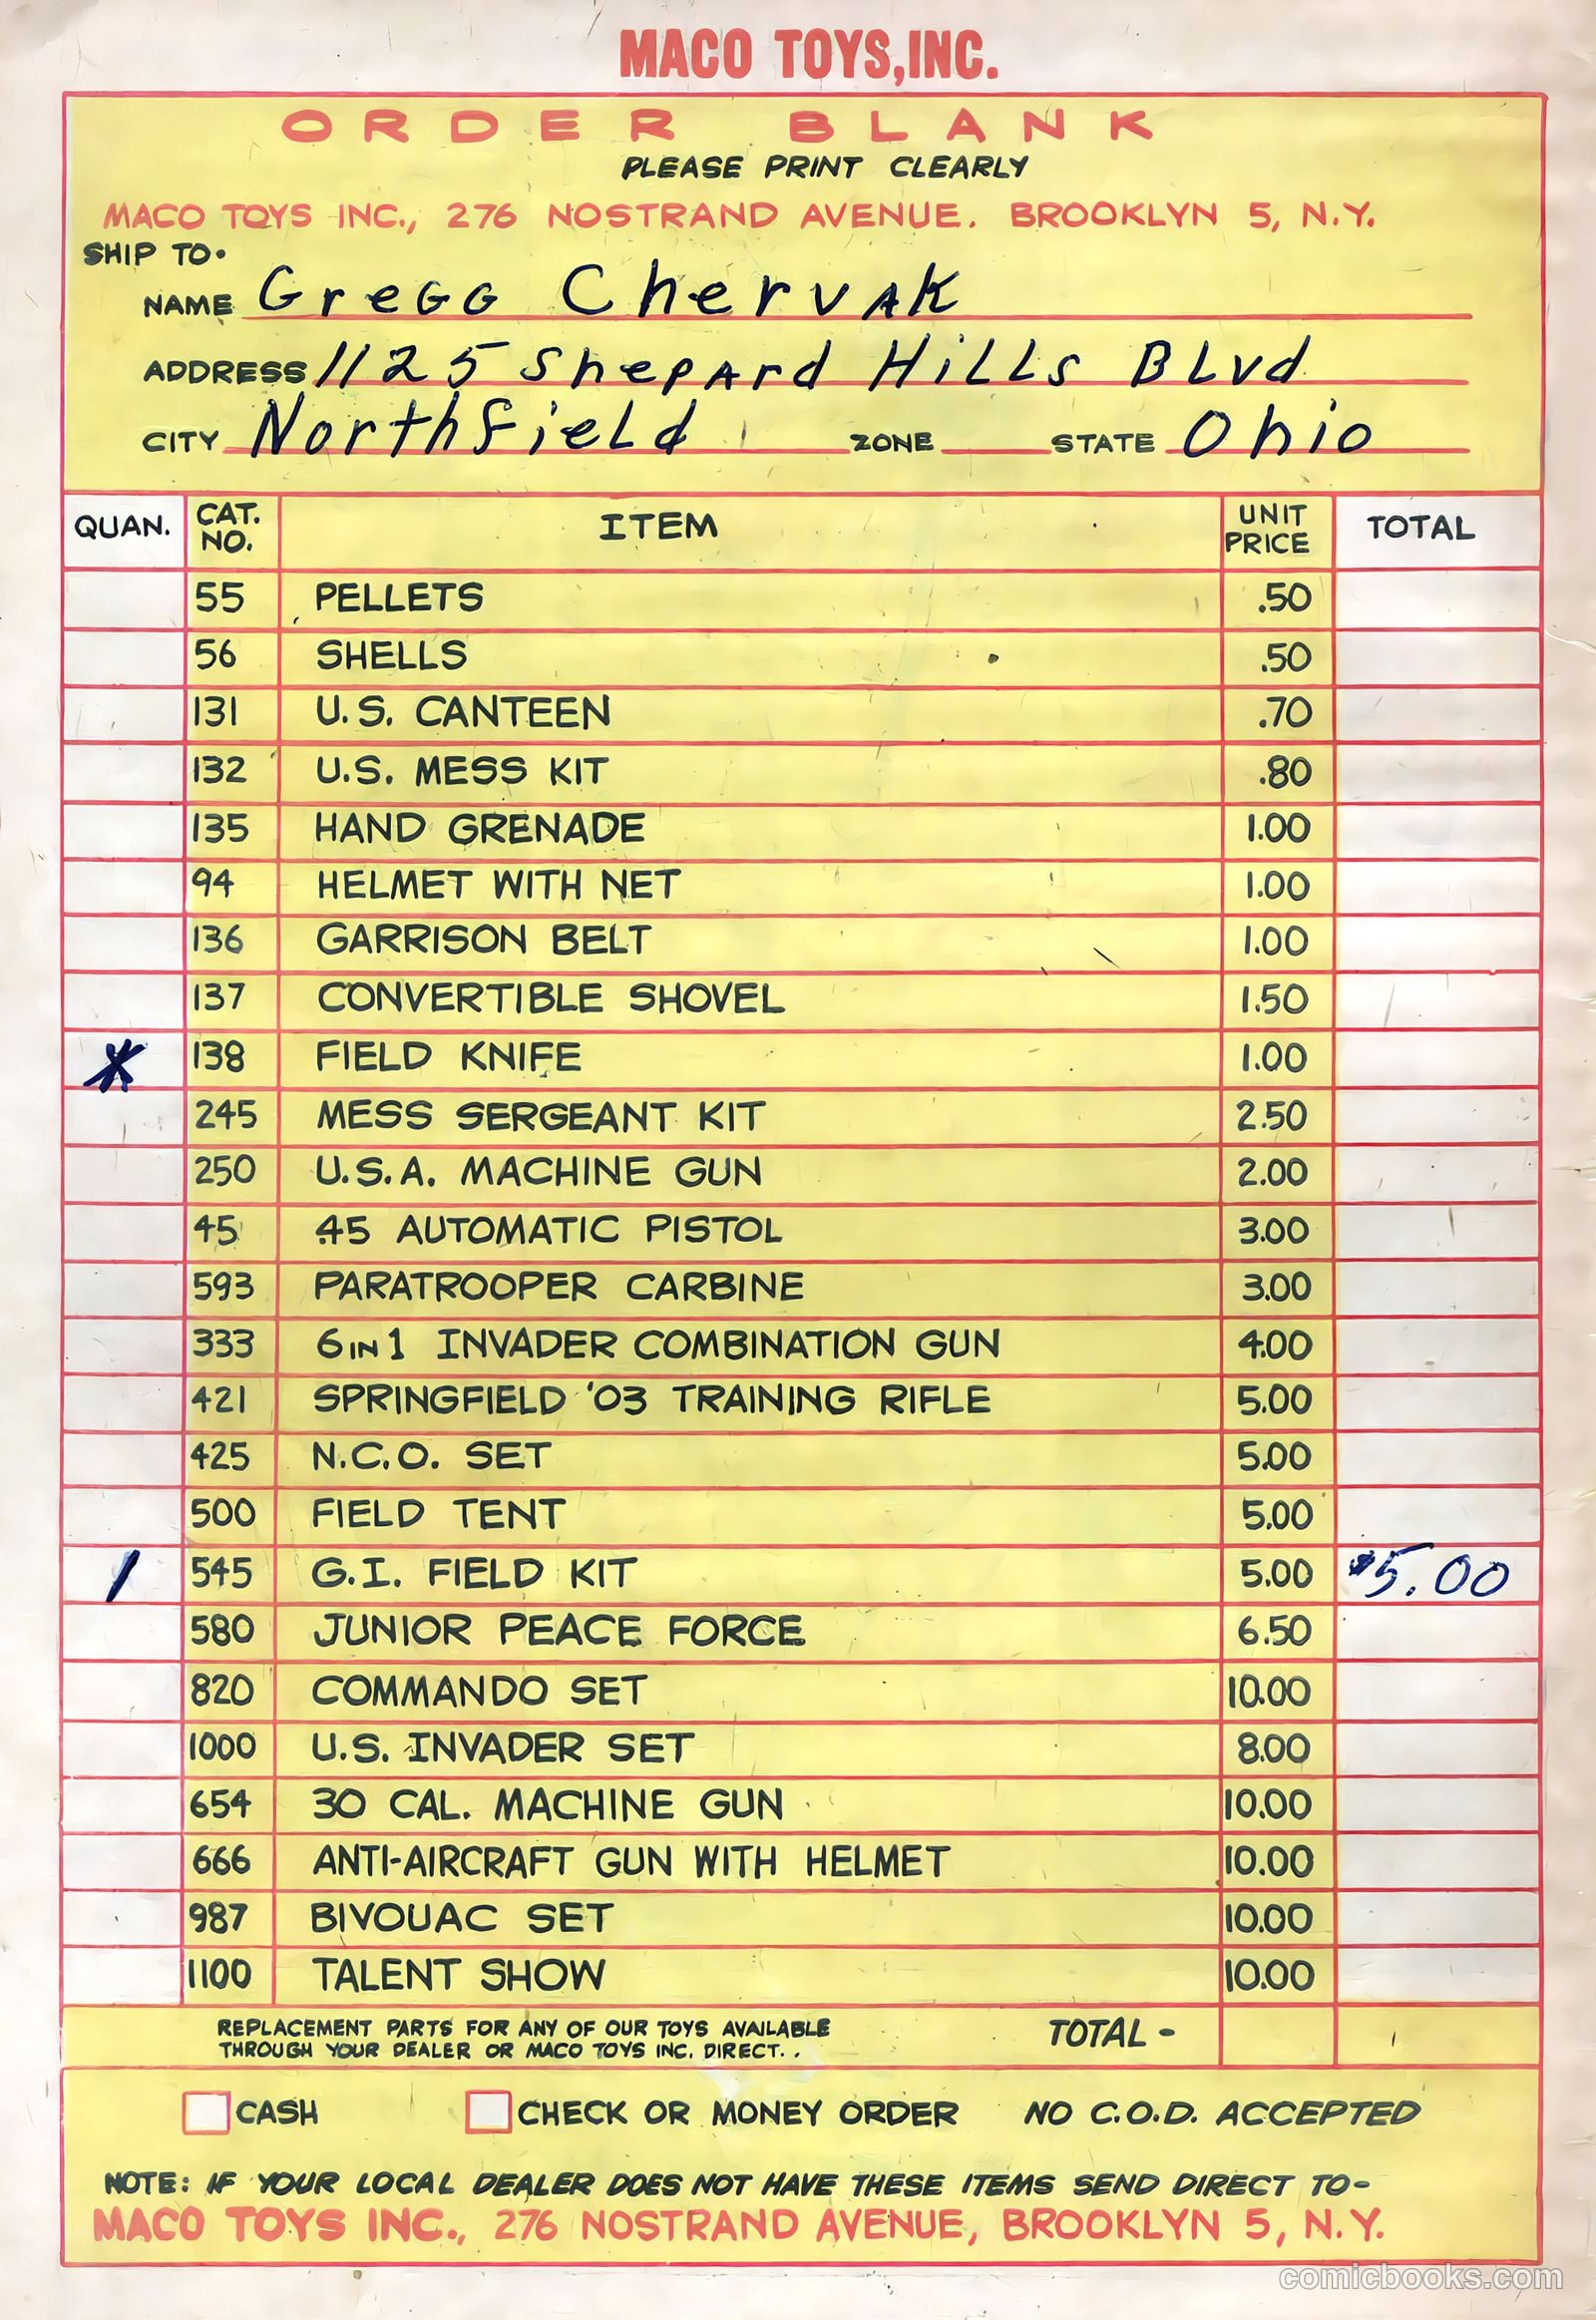 MACO TOYS, INC.
ORDER BLANK
PLEASE PRINT CLEARLY
MACO TOYS INC., 276 NOSTRAND AVENUE. BROOKLYN 5, N.Y.
SHIP TO.
NAME Gregg Chervak
ADDRESS 1125 Shepard Hills Blvd.
CITY Northfield ZONE STATE Ohio
QUAN. CAT. NO. ITEM UNIT PRICE TOTAL
55 PELLETS .50
56 SHELLS .50
131 U.S. CANTEEN .70
132 U.S. MESS KIT .80
135 HAND GRENADE 1.00
94 HELMET WITH NET 1.00
136 GARRISON BELT 1.00
137 CONVERTIBLE SHOVEL 1.50
* 138 FIELD KNIFE 1.00
245 MESS SERGEANT KIT 2.50
250 U.S.A. MACHINE GUN 2.00
45 .45 AUTOMATIC PISTOL 3.00
593 PARATROOPER CARBINE 3.00
333 6 IN 1 INVADER COMBINATION GUN 4.00
421 SPRINGFIELD '03 TRAINING RIFLE 5.00
425 N.C.O. SET 5.00
500 FIELD TENT 5.00
1 545 G.I. FIELD KIT 5.00 $5.00
580 JUNIOR PEACE FORCE 6.50
820 COMMANDO SET 10.00
1000 U.S. INVADER SET 8.00
654 30 CAL. MACHINE GUN 10.00
666 ANTI-AIRCRAFT GUN WITH HELMET 10.00
987 BIVOUAC SET 10.00
1100 TALENT SHOW 10.00
REPLACEMENT PARTS FOR ANY OF OUR TOYS AVAILABLE
THROUGH YOUR DEALER OR MACO TOYS INC. DIRECT..
TOTAL -
CASH CHECK OR MONEY ORDER NO C.O.D. ACCEPTED
NOTE: IF YOUR LOCAL DEALER DOES NOT HAVE THESE ITEMS SEND DIRECT TO-
MACO TOYS INC., 276 NOSTRAND AVENUE, BROOKLYN 5, N.Y.
comicbooks.com